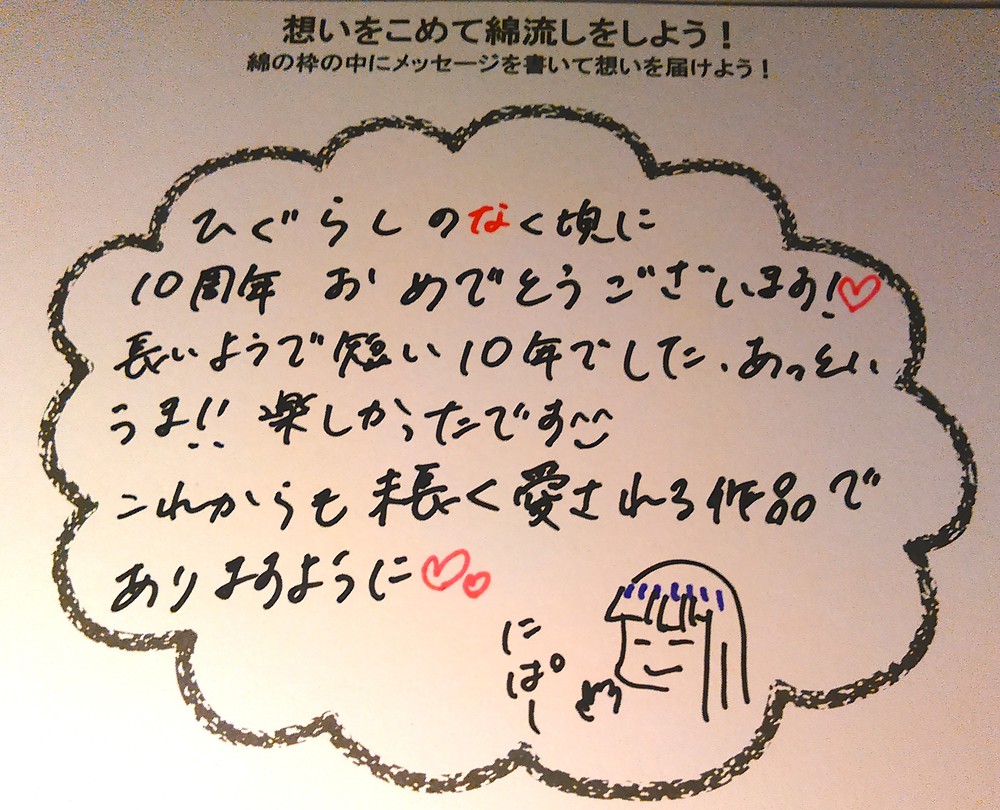 想いをこめて綿流しをしよう！
綿の枠の中にメッセージを書いて想いを届けよう！
ひぐらしのなく頃に
10周年 おめでとうございます!♡
長いようで短い10年でした、あっとい
うま!! 楽しかったです
これからも末長く愛される作品で
ありますように♡♡
にぱー